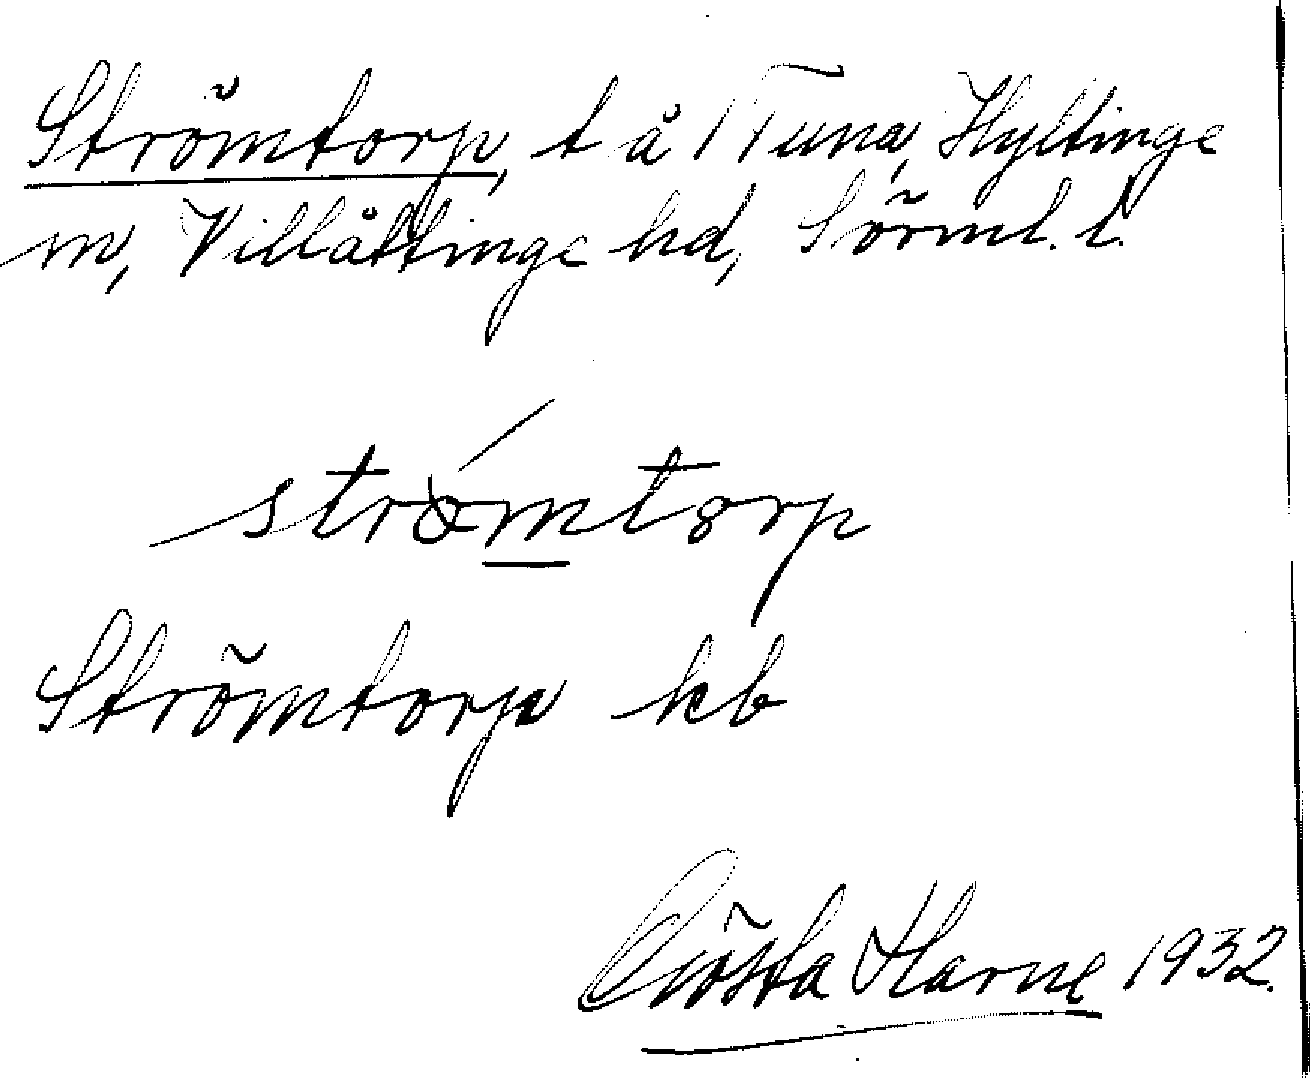 Strömtorp, t å 1 Tuna, Hyltinge
sn, Villåttinge hd, Sörml. l.
strömtorp
Strömtorp kb
Gösta Harne 1932.